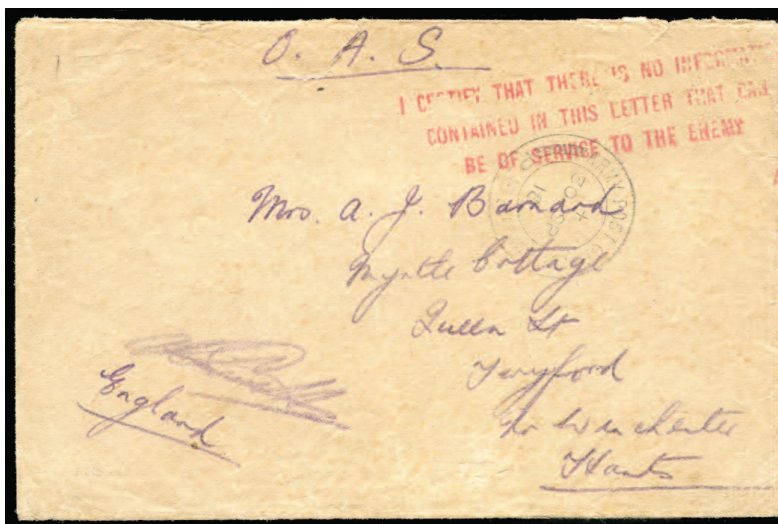 O. A. S.
I CERTIFY THAT THERE IS NO INFORMATIO
CONTAINED IN THIS LETTER THAT CAN
BE OF SERVICE TO THE ENEMY
ARMY POST
Mrs. A. J. Barnard
Myrtle Cottage
Queen St
Twyford
Nr Winchester
Hants
England